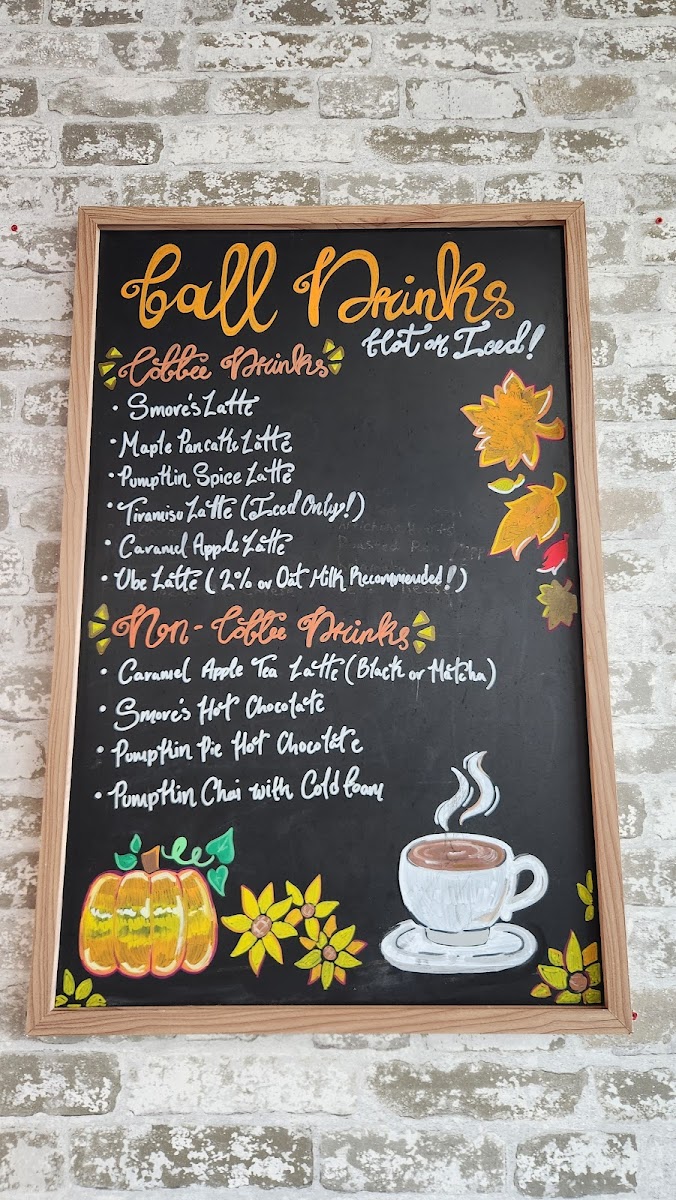 Fall Drinks
Hot or Iced!
Coffee Drinks
• Smore's Latte
• Maple Pancake Latte
• Pumpkin Spice Latte
• Tiramisu Latte (Iced Only!)
• Caramel Apple Latte
• Ube Latte (2% or Oat Milk Recommended!)
Non-Coffee Drinks
• Caramel Apple Tea Latte (Black or Matcha)
• Smore's Hot Chocolate
• Pumpkin Pie Hot Chocolate
• Pumpkin Chai with Cold foam